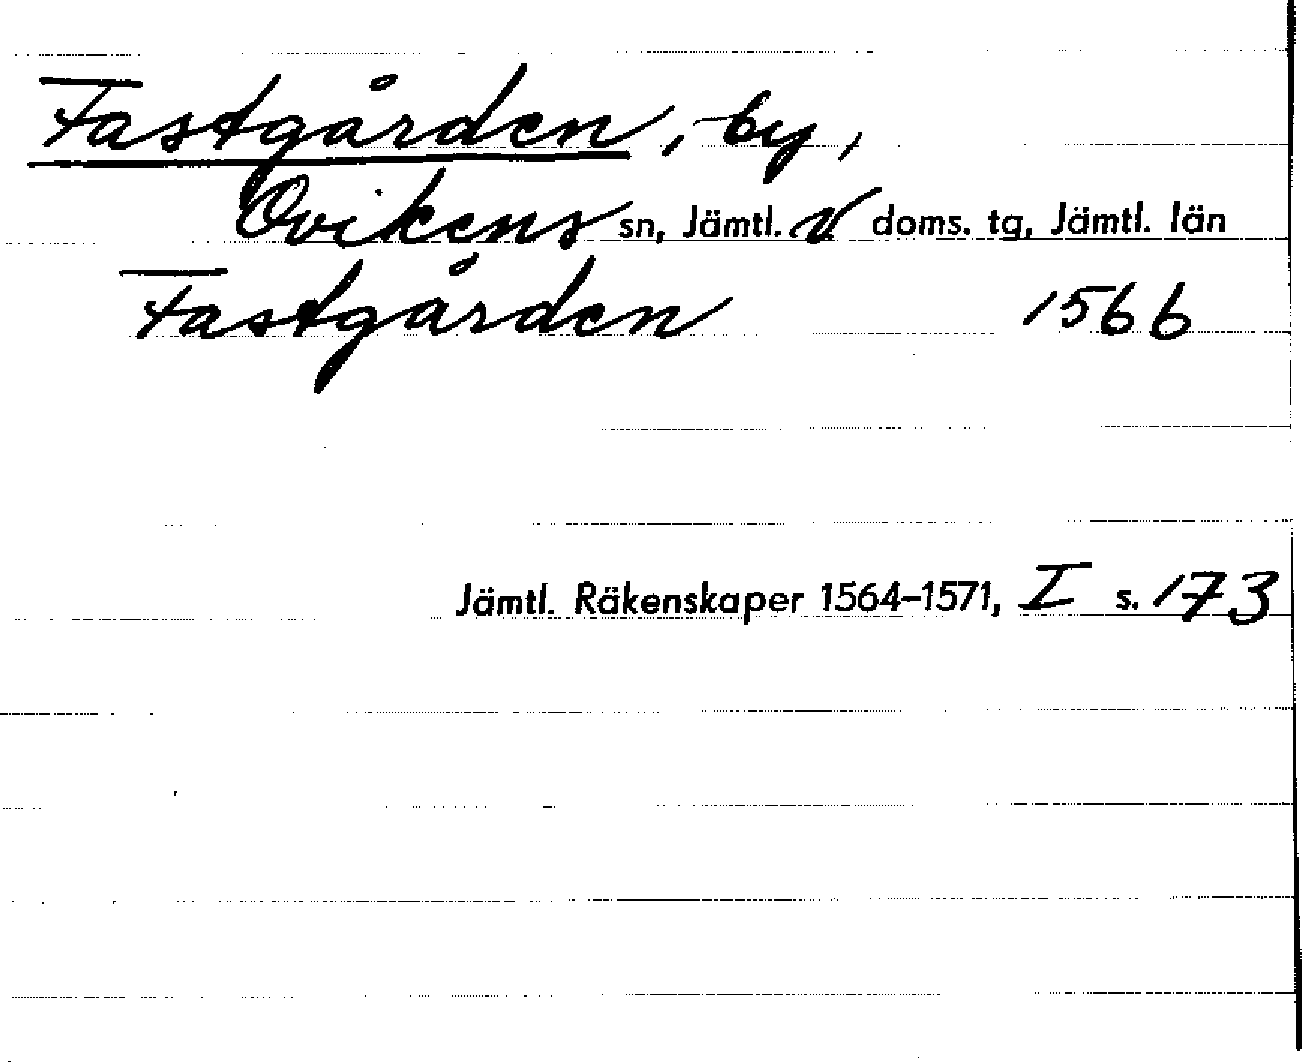 Fastgården, by,
Ovikens sn, Jämtl. V doms. tg, Jämtl. län
Fastgården 1566
Jämtl. Räkenskaper 1564-1571, I s. 173